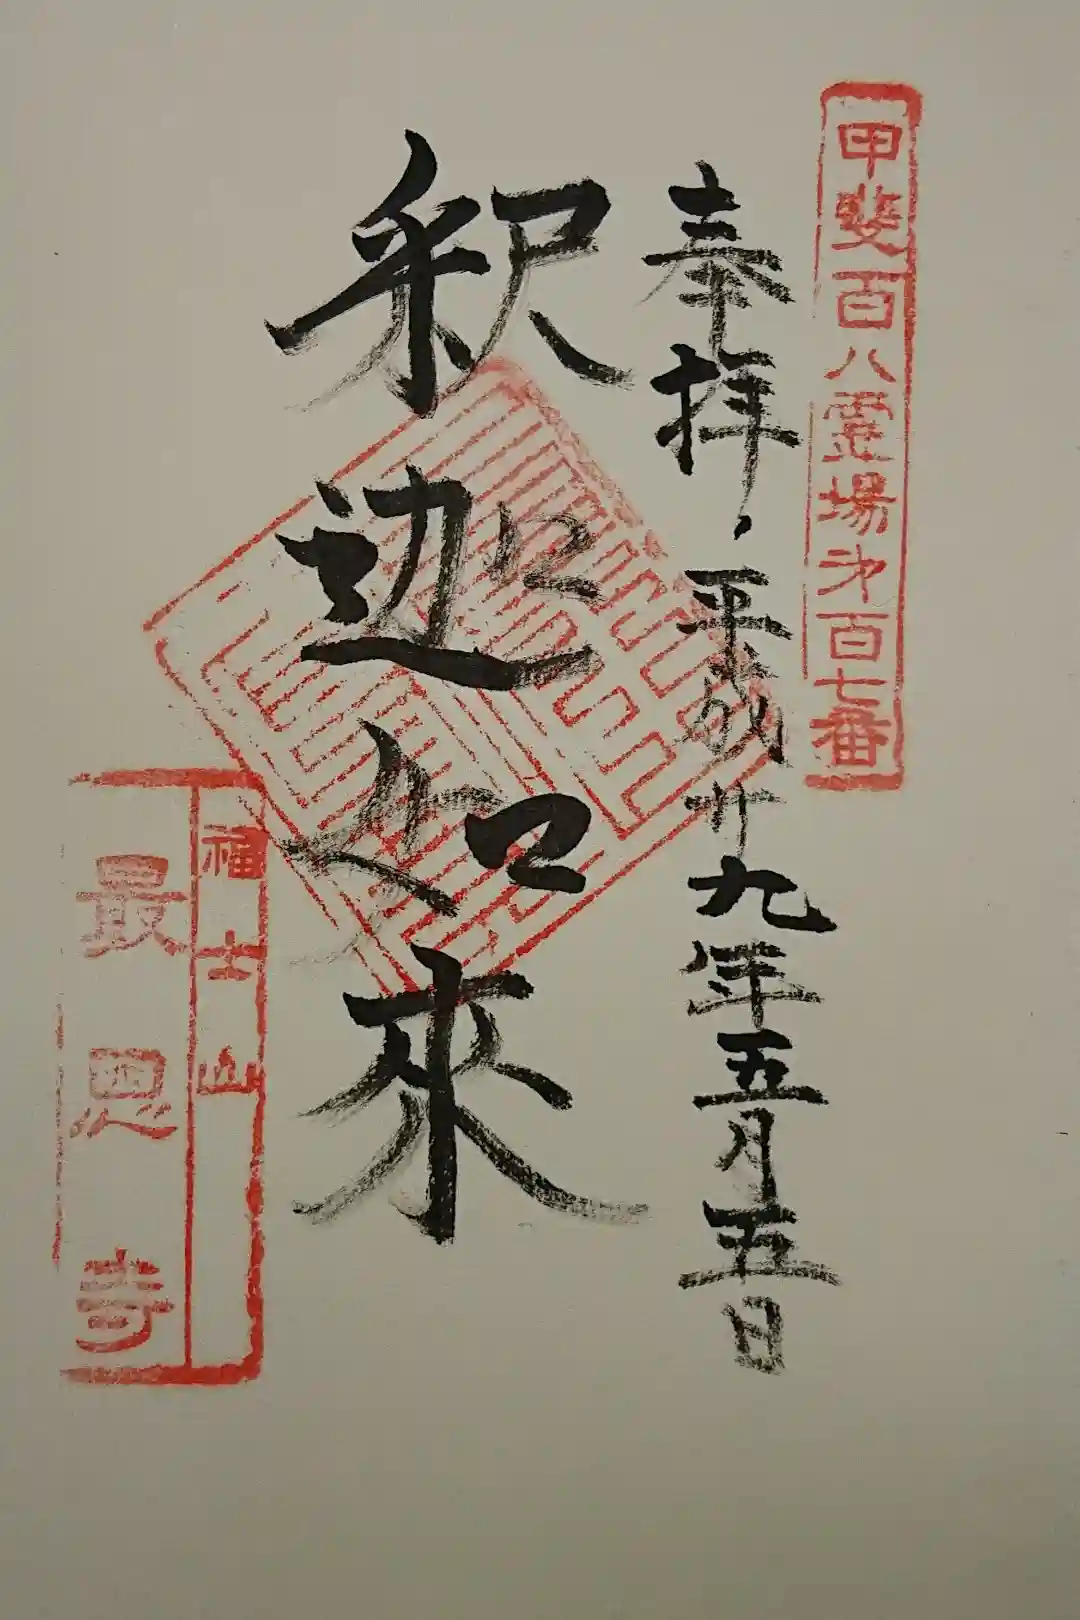 甲斐百八霊場第百七番
奉拝、平成廿九年五月五日
釈迦如来
福士山
最恩寺